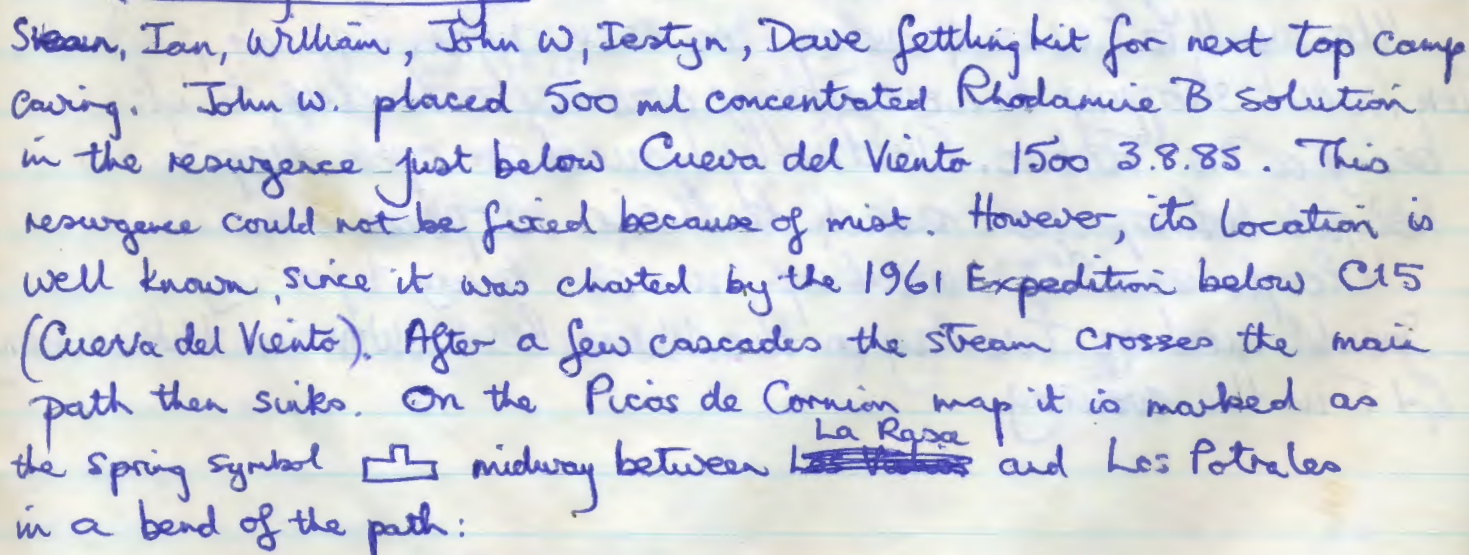 Ian, William, John W, Iestyn, Dave fettling kit for next top camp
caving. John W. placed 500 ml concentrated Rhodamine B solution
in the resurgence just below Cueva del Viento 1500 3.8.85. This
resurgence could not be fixed because of mist. However, its location is
well known, since it was charted by the 1961 Expedition below C15
(Cueva del Viento). After a few cascades the stream crosses the main
path then sinks. On the Picos de Cornion map it is marked as
La Rasa
the spring symbol midway between and Los Potrales
in a bend of the path: